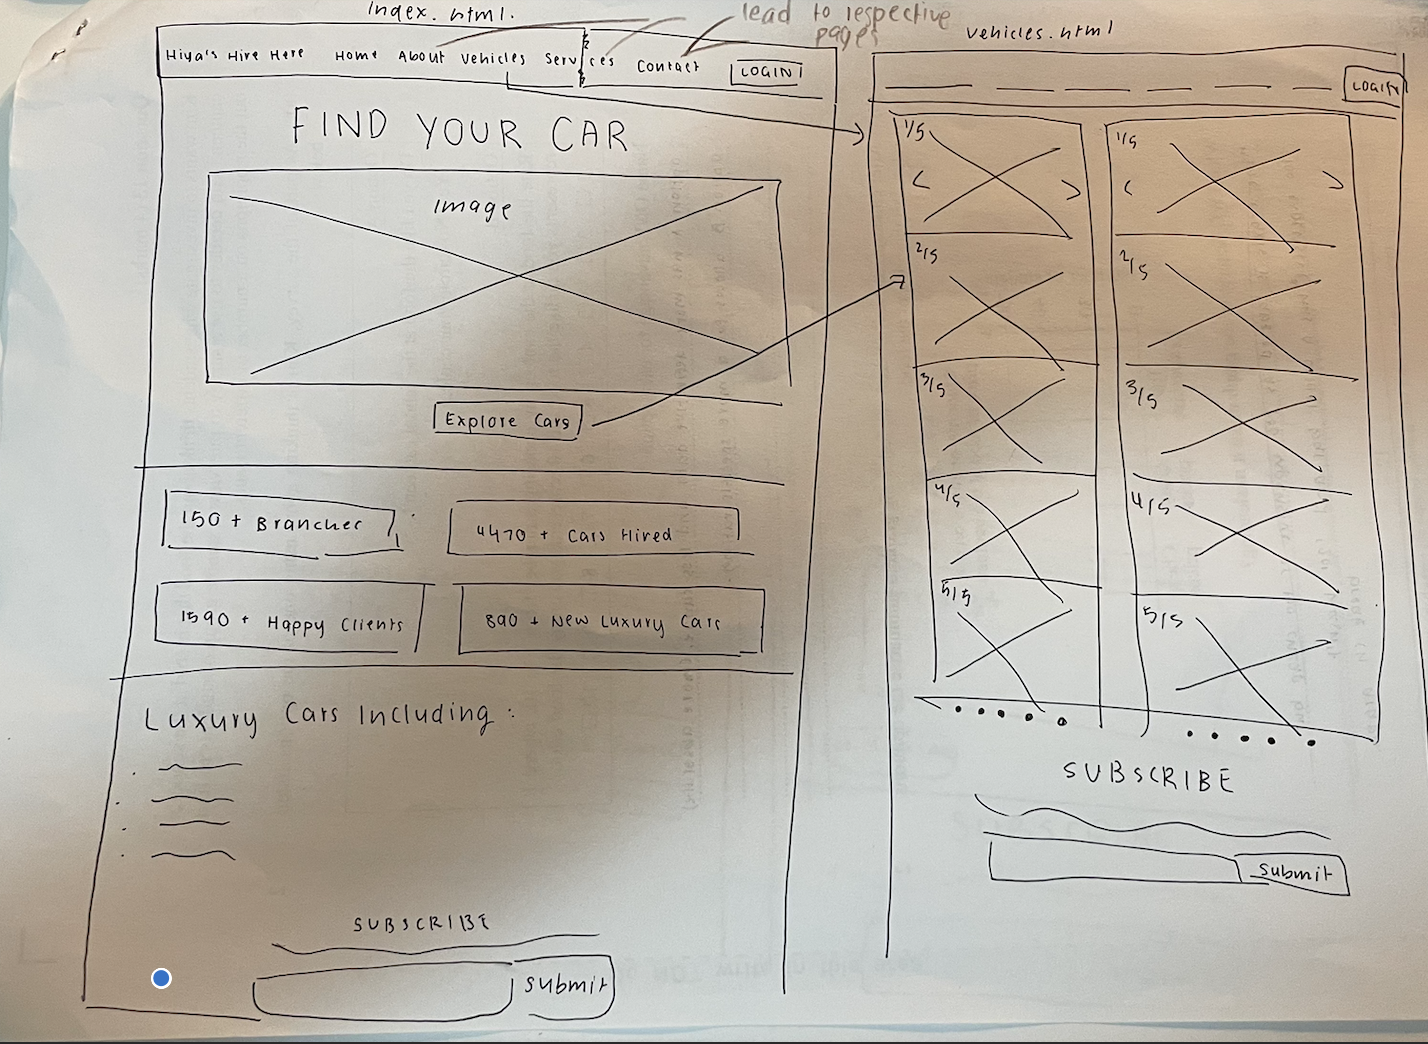 Index.html.
lead to respective
pages
Hiya's Hire Here Home About Vehicles Services Contact LOGIN
FIND YOUR CAR
Image
Explore Cars
150 + Branches
4470 + Cars Hired
1590 + Happy Clients
890 + New Luxury Cars
Luxury Cars Including :
SUBSCRIBE
submit
vehicles.html
LOGIN
1/5
2/5
3/5
4/5
5/5
1/5
2/5
3/5
4/5
5/5
SUBSCRIBE
Submit